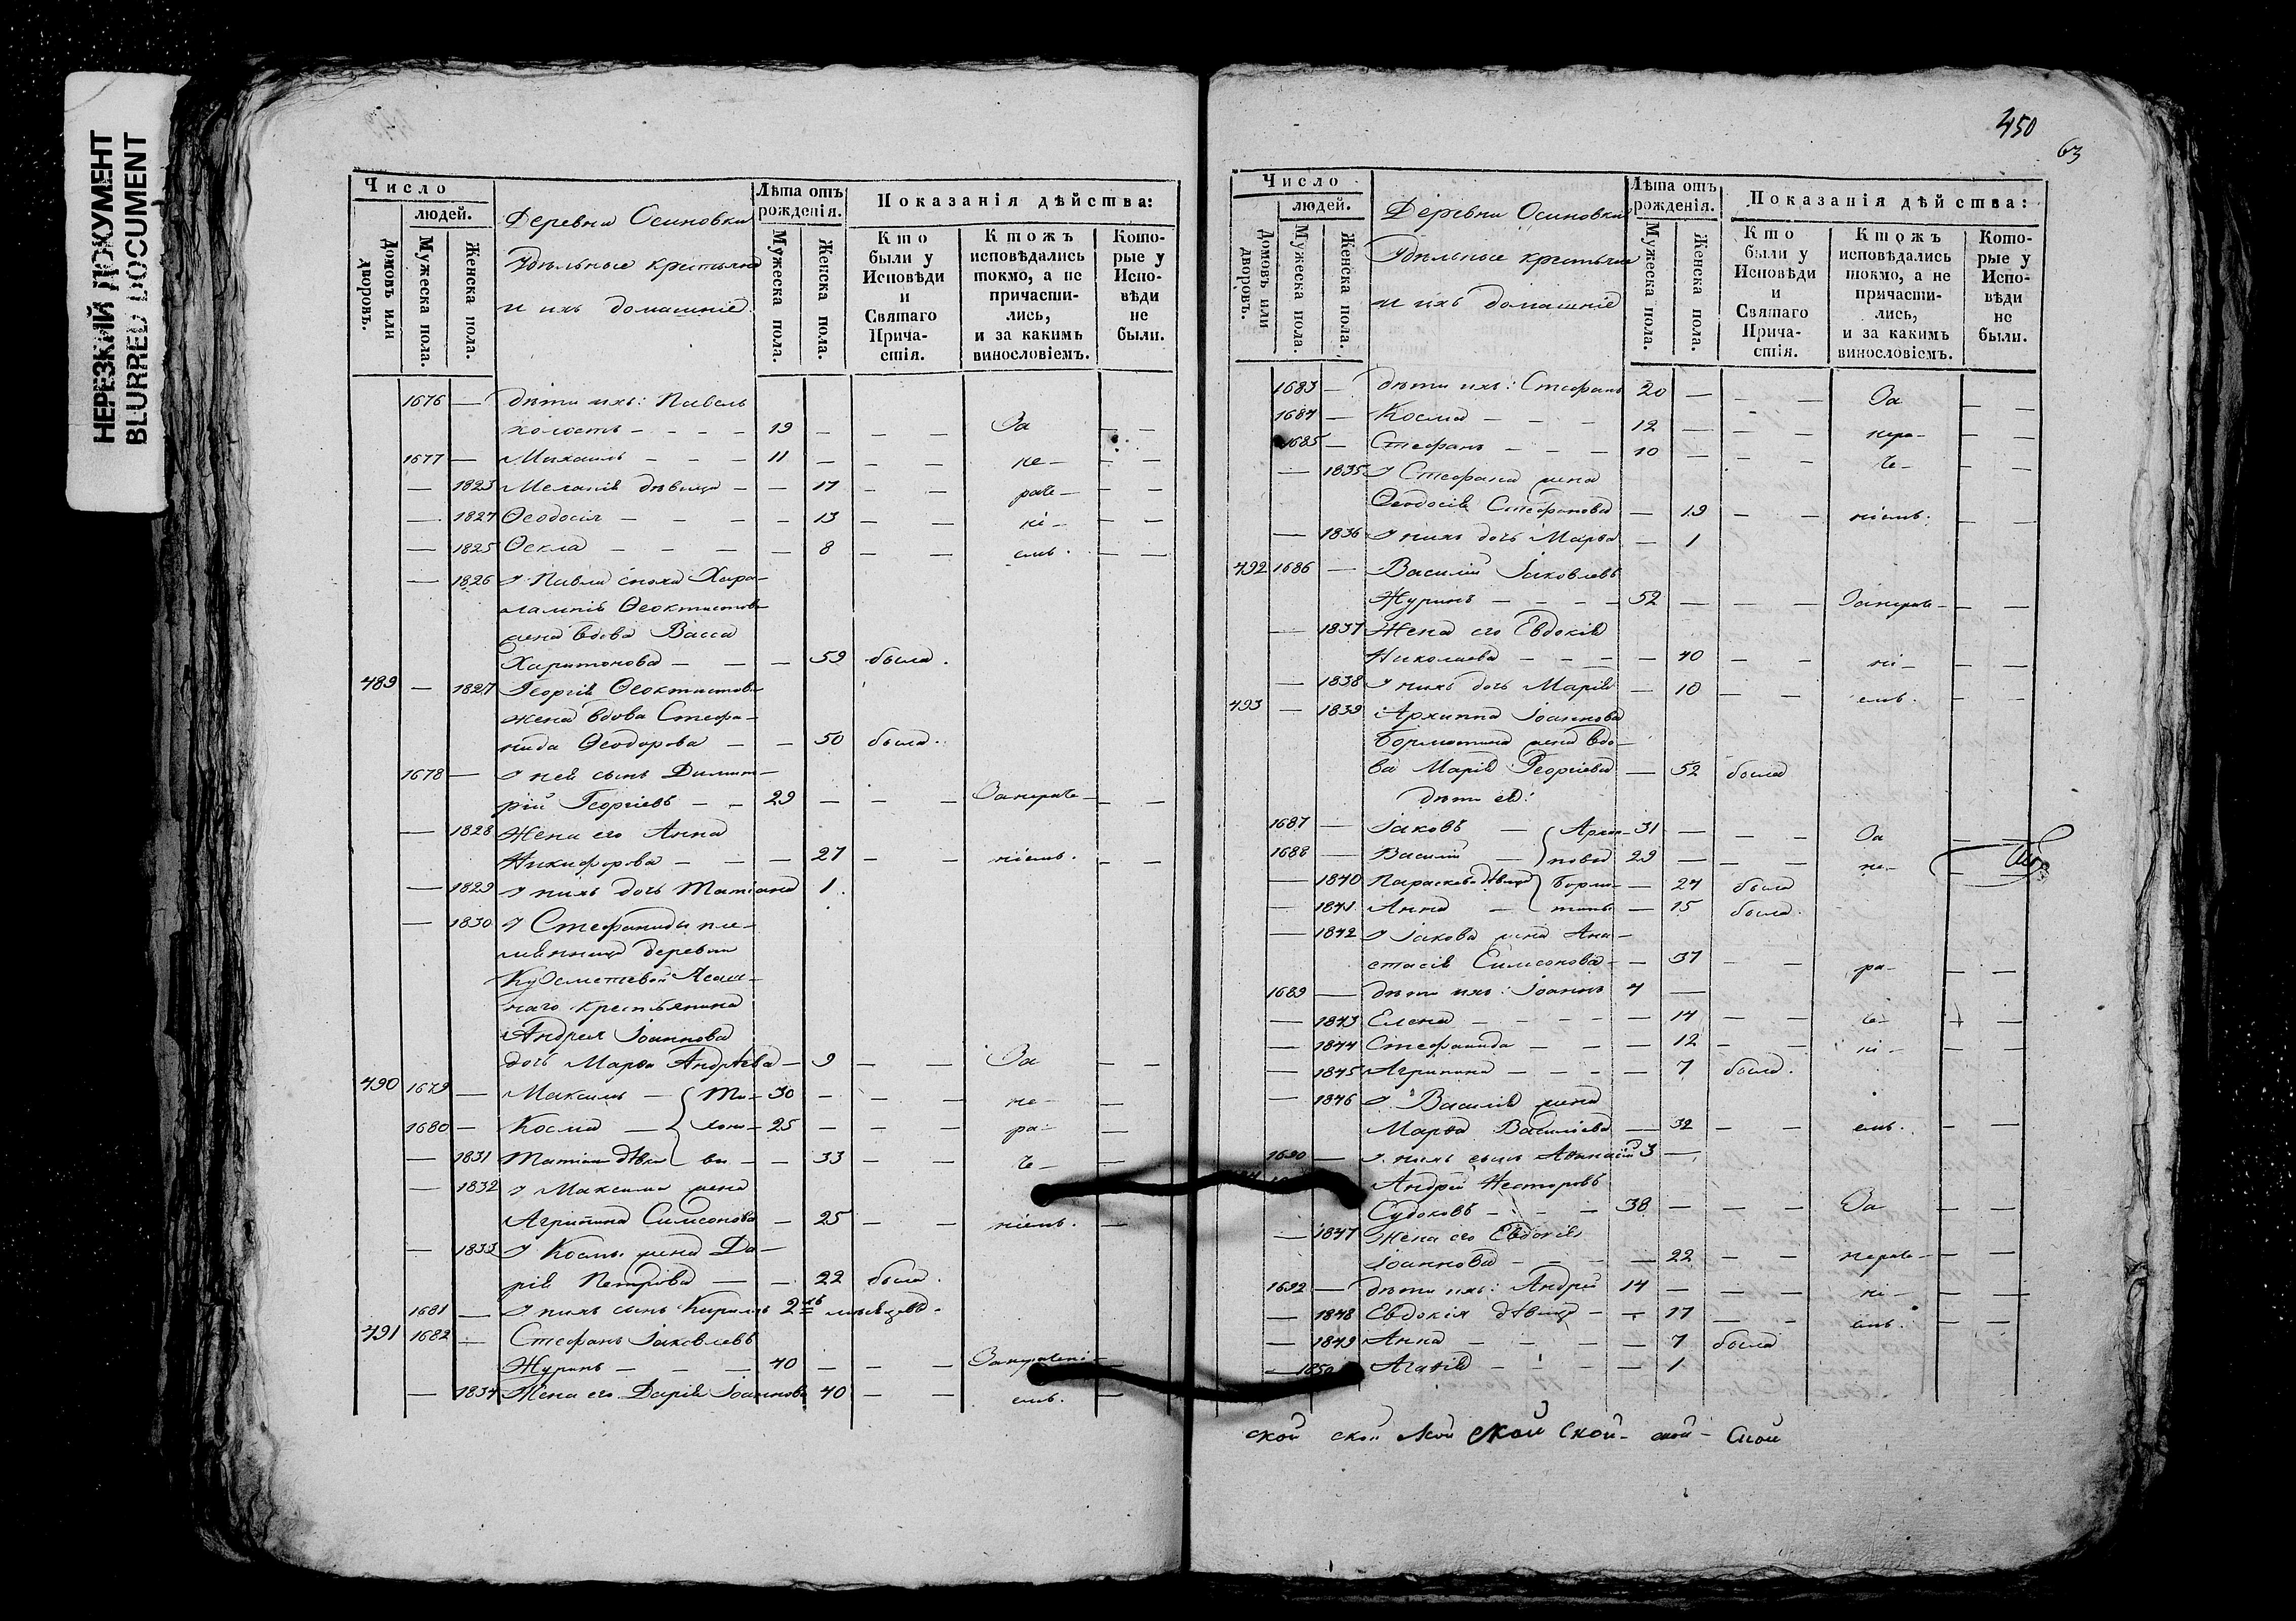 НЕРЕЗКИЙ ДОКУМЕНТ
BLURRED DOCUMENT
Число
людей.
Домовъ или дворовъ.
Мужеска пола.
Женска пола.
Деревни Осиновки
Удѣльные крестьяне
и ихъ домашніе
Лѣта отъ рожденія.
Мужеска пола.
Женска пола.
Показанія дѣйства:
Кто были у Исповѣди и Святаго Причастія.
Ктожъ исповѣдались токмо, а не причастились, и за какимъ винословіемъ.
Которые у Исповѣди не были.
1676 — дѣти ихъ: Павелъ
холостъ — — — — 19 — — — За — —
1677 — Михаилъ — — — 11 — — — не — — —
— 1823 Меланія дѣвица — — 17 — — раче — — —
— 1824 Ѳеодосія — — — — 13 — — ні — — —
— 1825 Ѳекла — — — — 8 — — емъ. — —
— 1826 У Павла сноха Хара—
лампія Ѳеоктистова
жена вдова Васса
Харитонова — — — 59 была.
489 — 1827 Георгія Ѳеоктистова
жена вдова Стефа—
нида Ѳеодорова — — 50 была.
1678 — У ней сынъ Димит—
рій Георгіевъ — — 29 — — — Занераче — — —
— 1828 Жена его Анна
Никифорова — — — 27 — — ніемъ. — —
— 1829 У нихъ дочь Татіана 1.
— 1830 У Стефаниды пле—
мянница деревни
наго крестьянина
Андрея Іоаннова
дочь Марѳа Андрѣева — 9 — — За — —
490 1679 — Максимъ — Ти— 30 — — — не — —
1680 — Косма — хоно— 25 — — — ра — —
— 1831 Татіана дѣвка вы — — 33 — — че — —
— 1832 У Максима жена
Агрипина Симеонова — 25 — — ніемъ. —
— 1833 У Космы жена Да—
рія Петрова — — 22 была.
1681 — У нихъ сынъ Кириллъ 2хъ мѣсяцевъ.
491 1682 — Стефанъ Іаковлевъ
Журинъ — — — 40 — — — Занерачені —
— 1834 Жена его Дарія Іоаннова 40 — — емъ. —
450
63
Число
людей.
Домовъ или дворовъ.
Мужеска пола.
Женска пола.
Деревни Осиновки
Удѣльные крестьяне
и ихъ домашніе
Лѣта отъ рожденія.
Мужеска пола.
Женска пола.
Показанія дѣйства:
Кто были у Исповѣди и Святаго Причастія.
Ктожъ исповѣдались токмо, а не причастились, и за какимъ винословіемъ.
Которые у Исповѣди не были.
1683 — дѣти ихъ: Стефанъ 20 — — — За — —
1684 — Косма — — — 12 — — — нера — — —
1685 — Стефанъ — — — 10 — — — че — — —
— 1835 У Стефана жена
Ѳеодосія Стефанова — 19 — — ніемъ. — —
— 1836 У нихъ дочь Марѳа — 1
492 1686 — Василій Іаковлевъ
Журинъ — — — — 52 — — — Занераче — — —
— 1837 Жена его Евдокія
Николаева — — — — 40 — — ні — — —
— 1838 У нихъ дочь Марія — 10 — — емъ. — —
493 — 1839 Архиппа Іоаннова
Бормотина жена вдо—
ва Марія Георгіева — 52 была
дѣти ея:
1687 — Іаковъ — Архип— 31 — — — За — —
1688 — Василій — повы 29 — — — не — —
— 1840 Параскева дѣвица Бормо— — 24 была
— 1841 Анна — тины — 15 была.
— 1842 У Іакова жена Ана—
стасія Симеонова — — 37 — — ра — — —
1689 — дѣти ихъ: Іоаннъ 4 —
— 1843 Елена — — — — — 14 — — че — — —
— 1844 Стефанида — — — 12 — — ні — — —
— 1845 Агрипина — — — — 7 была.
— 1846 У Василія жена
Марѳа Василіева — 32 — — емъ. — —
1690 — У нихъ сынъ Аѳанасій 3 —
Андрей Несторовъ
Судоковъ — — — 38 — — — За — —
— 1847 Жена его Евдокія
Іоаннова — — — — 22 — — нераче — — —
1692 — дѣти ихъ: Андрей 14 — — — ні — — —
— 1848 Евдокія дѣвица — — 17 — — емъ. — —
— 1849 Анна — — — — 7 была
— 1850 Агаѳія — — — — 1
ской ской ской ской ской — ской — ской